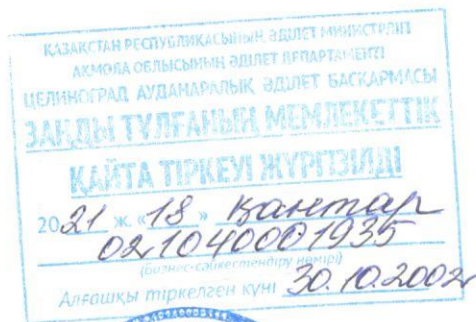 ҚАЗАҚСТАН РЕСПУБЛИКАСЫНЫҢ ӘДІЛЕТ МИНИСТРЛІГІ
АҚМОЛА ОБЛЫСЫНЫҢ ӘДІЛЕТ ДЕПАРТАМЕНТІ
ЦЕЛИНОГРАД АУДАНАРАЛЫҚ ӘДІЛЕТ БАСҚАРМАСЫ
ЗАҢДЫ ТҰЛҒАНЫҢ МЕМЛЕКЕТТІК
ҚАЙТА ТІРКЕУІ ЖҮРГІЗІЛДІ
2021 ж. «18» қантар
021040001935
(бизнес-сәйкестендіру нөмірі)
Алғашқы тіркелген күні 30.10.2002